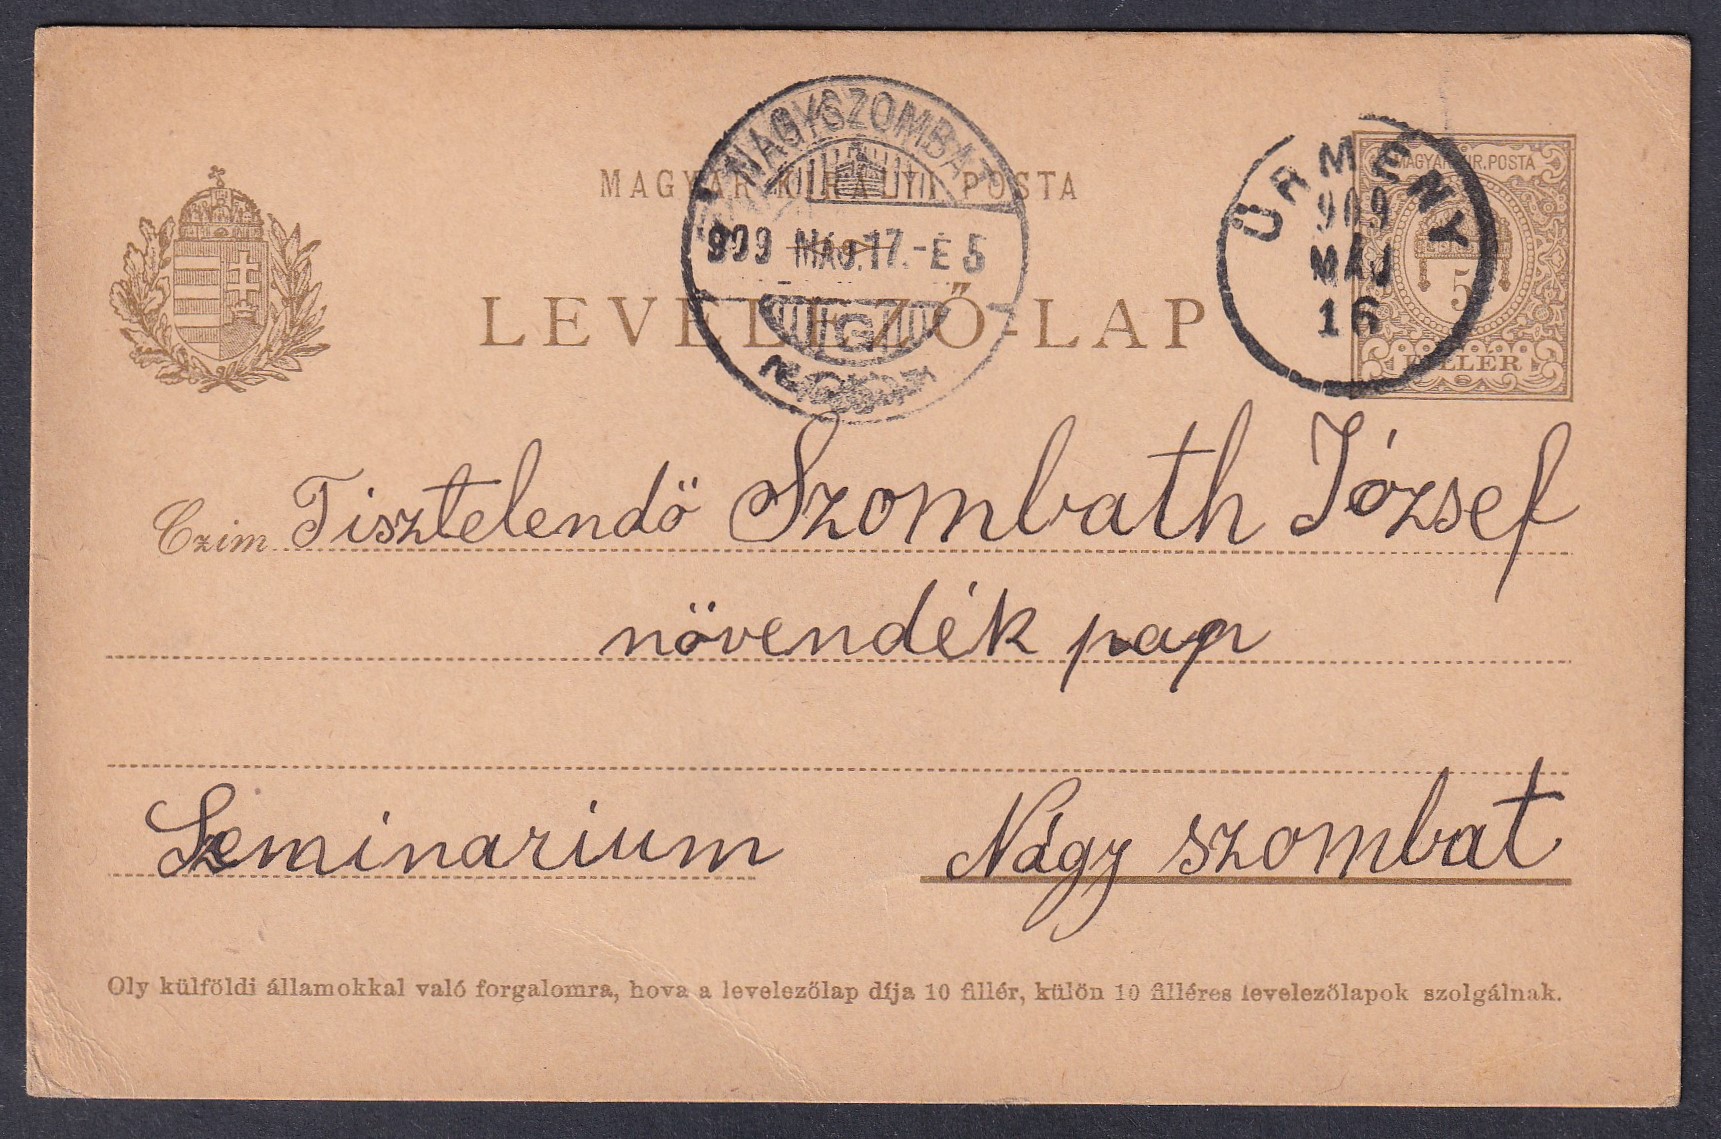 NAGYSZOMBAT
909 MÁJ.17.-É5
G
ÜRMÉNY
909
MÁJ
16
MAGYAR KIRÁLYI POSTA
MAGYAR KIR. POSTA
5
FILLÉR
LEVELEZŐ-LAP
Czim Tisztelendö Szombath József
növendék pap
Szeminarium Nagy szombat
Oly külföldi államokkal való forgalomra, hova a levelezőlap díja 10 fillér, külön 10 filléres levelezőlapok szolgálnak.